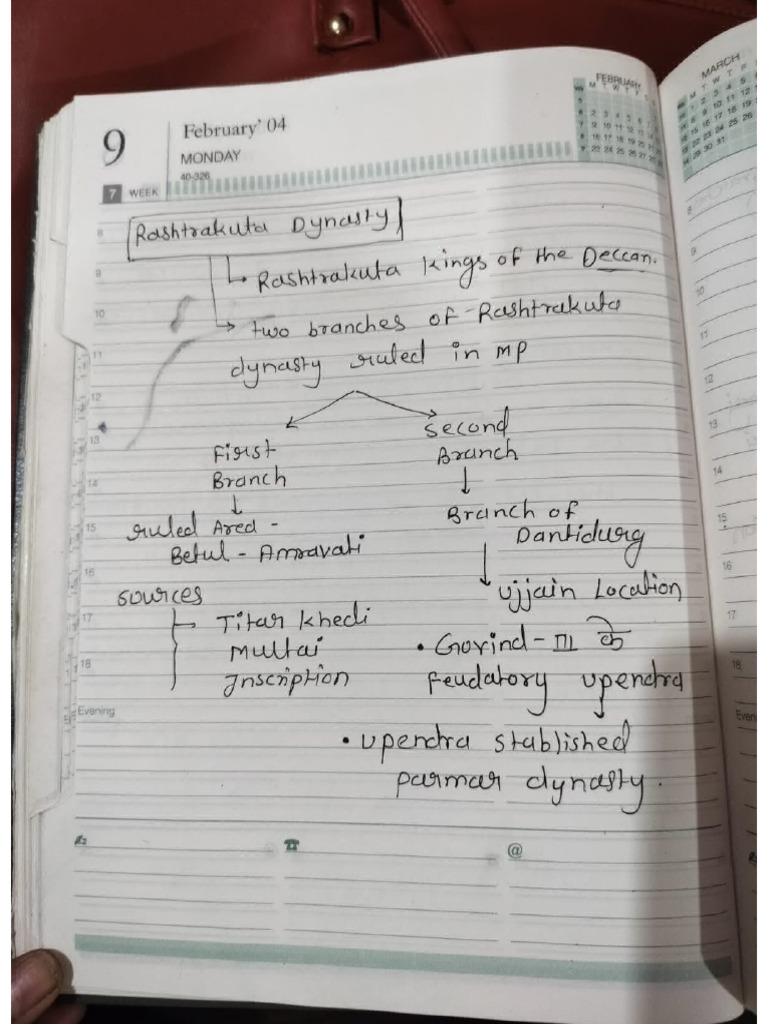 9
February' 04
MONDAY
40-326
7 WEEK
FEBRUARY
MARCH
Rashtrakuta Dynasty
Rashtrakuta kings of the Deccan.
two branches of Rashtrakuta
dynasty ruled in MP
First
Branch
Second
Branch
ruled Area -
Betul - Amravati
Branch of
Dantidurg
Ujjain Location
sources
Titar Khedi
Multai
Inscription
• Govind - III के
feudatory upendra
• upendra stablished
parmar dynasty.
8
9
10
11
12
13
14
15
16
17
18
Evening
@